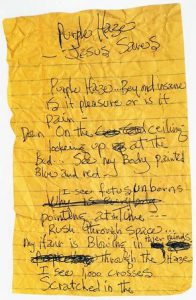 Purple Haze
- Jesus Saves
Purple Haze.. Beyond insane
is it pleasure or is it
pain -
Down On the ceiling
looking up at the
Bed... See my Body painted
Blue and red -
I see fetus unborns
pointing at me
Rush through Space...
My Hair is Blowing in their minds
through the Haze
I see 1,000 crosses
Scratched in the